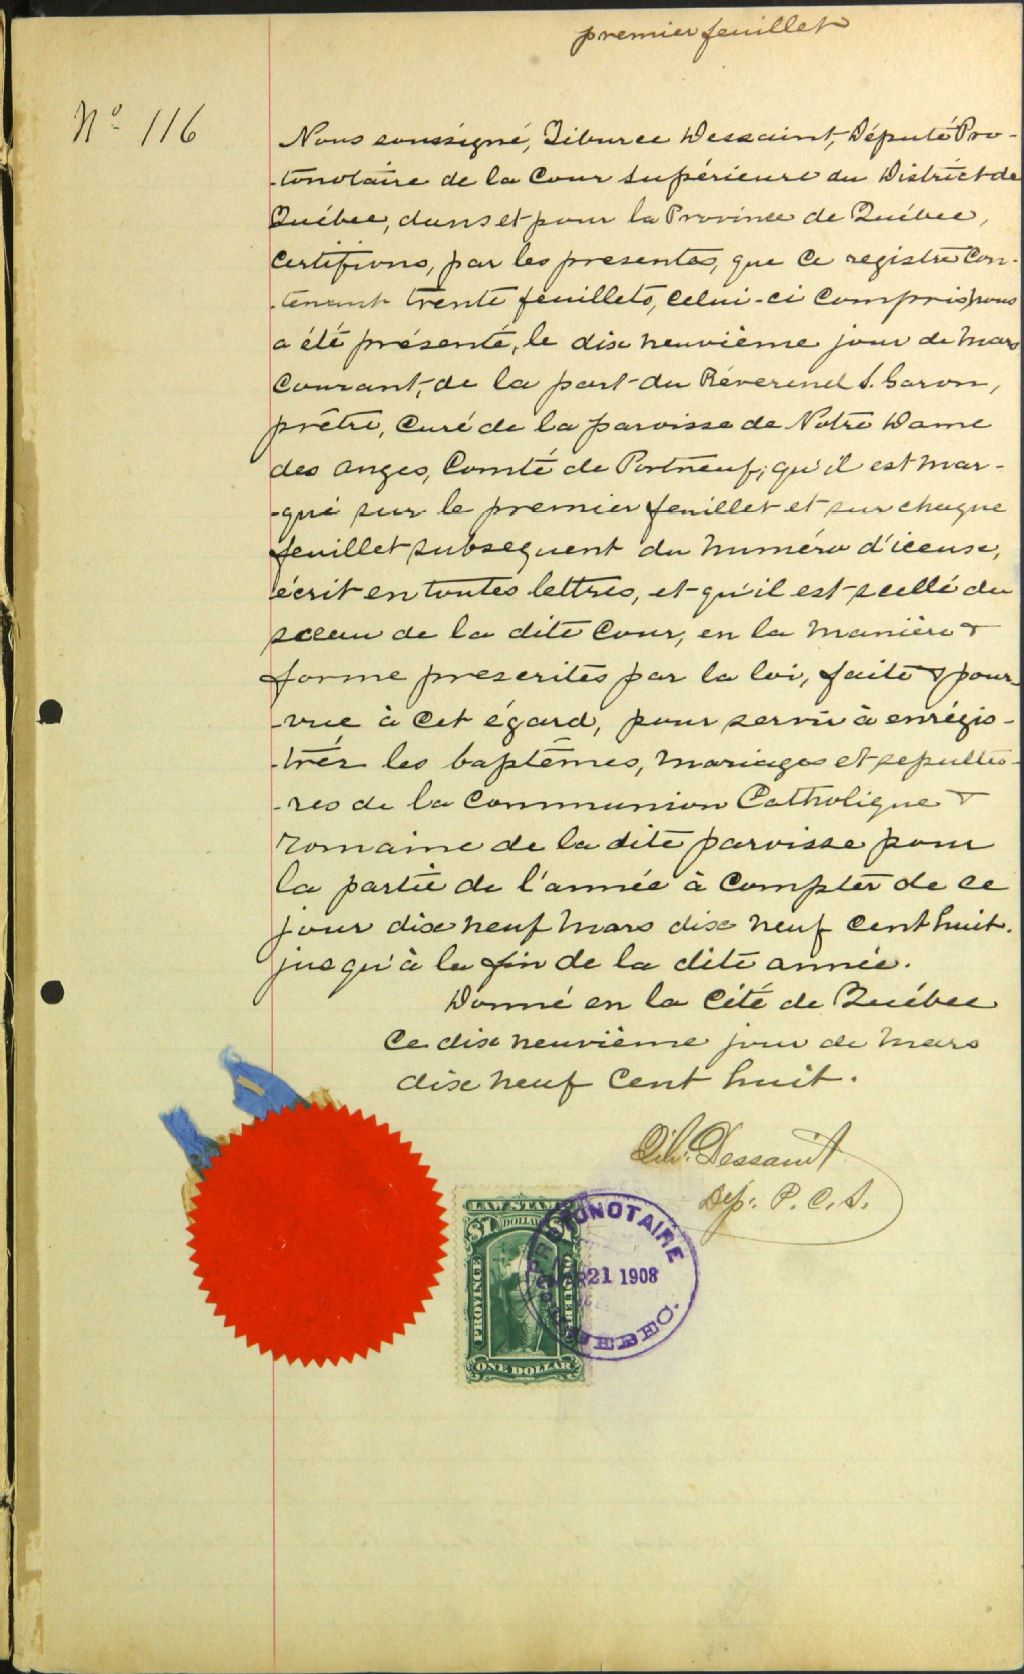 premier feuillet
No 116
Nous soussigné, Tiburce Dessaint, Député Pro-
-tonotaire de la Cour Supérieure du District de
Québec, dans et pour la Province de Québec,
Certifions, par les presentes, que ce registre Con-
-tenant trente feuillets, celui-ci compris, nous
a été présenté, le dix neuvième jour de Mars
Courant, de la part du Réverend S. Garon,
prêtre, Curé de la paroisse de Notre Dame
des Anges, Comté de Portneuf; qu'il est mar-
-qué sur le premier feuillet et sur chaque
feuillet subsequent du numéro d'iceux,
écrit en toutes lettres, et qu'il est scellé du
sceau de la dite Cour, en la manière &
forme prescrites par la loi, faite & pour-
-vue à cet égard, pour servir à enrégis-
-trer les baptêmes, mariages et sepultu-
-res de la Communion Catholique &
romaine de la dite paroisse pour
la partie de l'année à compter de ce
jour dix neuf Mars dix neuf cent huit.
jusqu'à la fin de la dite année.
Donné en la Cité de Québec
Ce dix neuvième jour de Mars
dix neuf cent huit.
Tib. Dessaint
Dep. P. C. S.
LAW STAMP
$1 DOLLAR $1
PROVINCE
QUEBEC
ONE DOLLAR
PROTONOTAIRE
MAR 21 1908
QUEBEC.